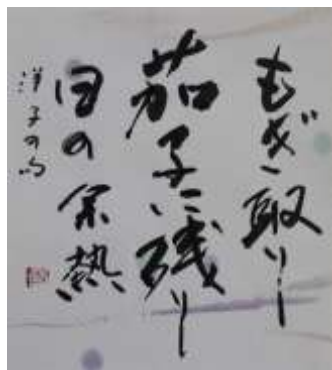 もぎ取りし
茄子に残りし
日の余熱
洋子の句